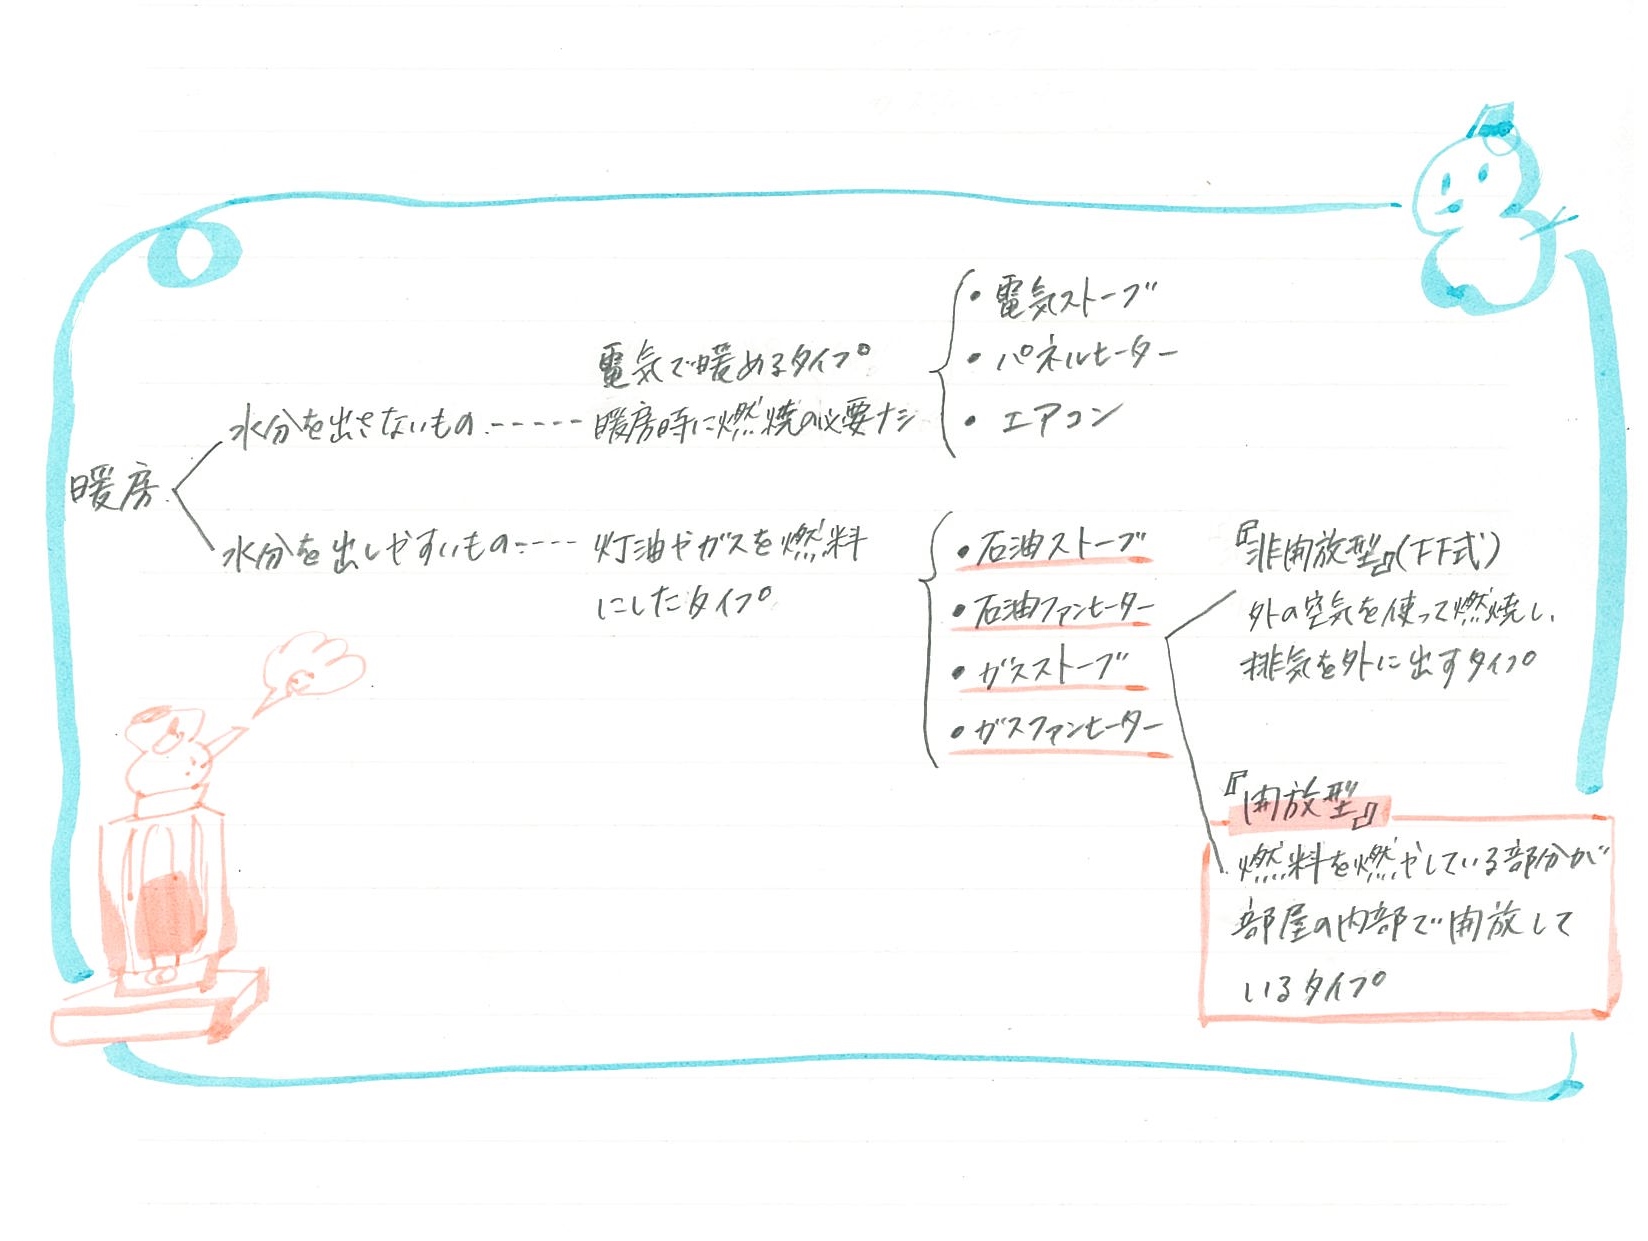 暖房
水分を出さないもの-----
電気で暖めるタイプ
暖房時に燃焼の必要ナシ
・電気ストーブ
・パネルヒーター
・エアコン
水分を出しやすいもの----
灯油やガスを燃料
にしたタイプ
・石油ストーブ
・石油ファンヒーター
・ガスストーブ
・ガスファンヒーター
『非開放型』(FF式)
外の空気を使って燃焼し、
排気を外に出すタイプ
『開放型』
燃料を燃やしている部分が
部屋の内部で開放して
いるタイプ